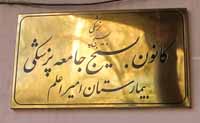 کانون بسیج جامعه پزشکی
بیمارستان امیراعلم